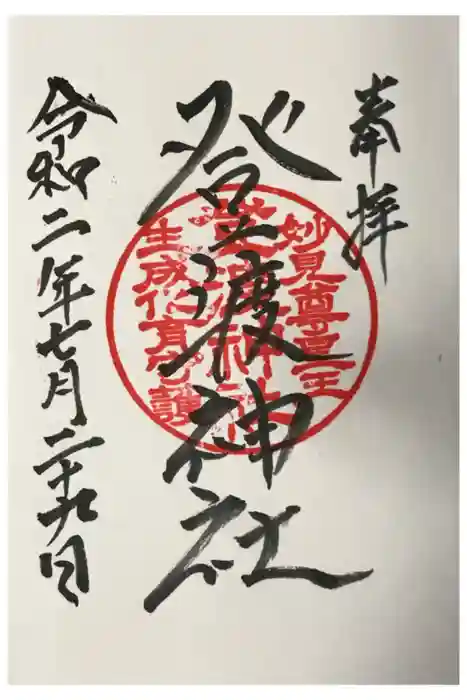 奉拝
登渡神社
妙見尊星王
登渡神社
生成化育守護
令和二年七月二十九日